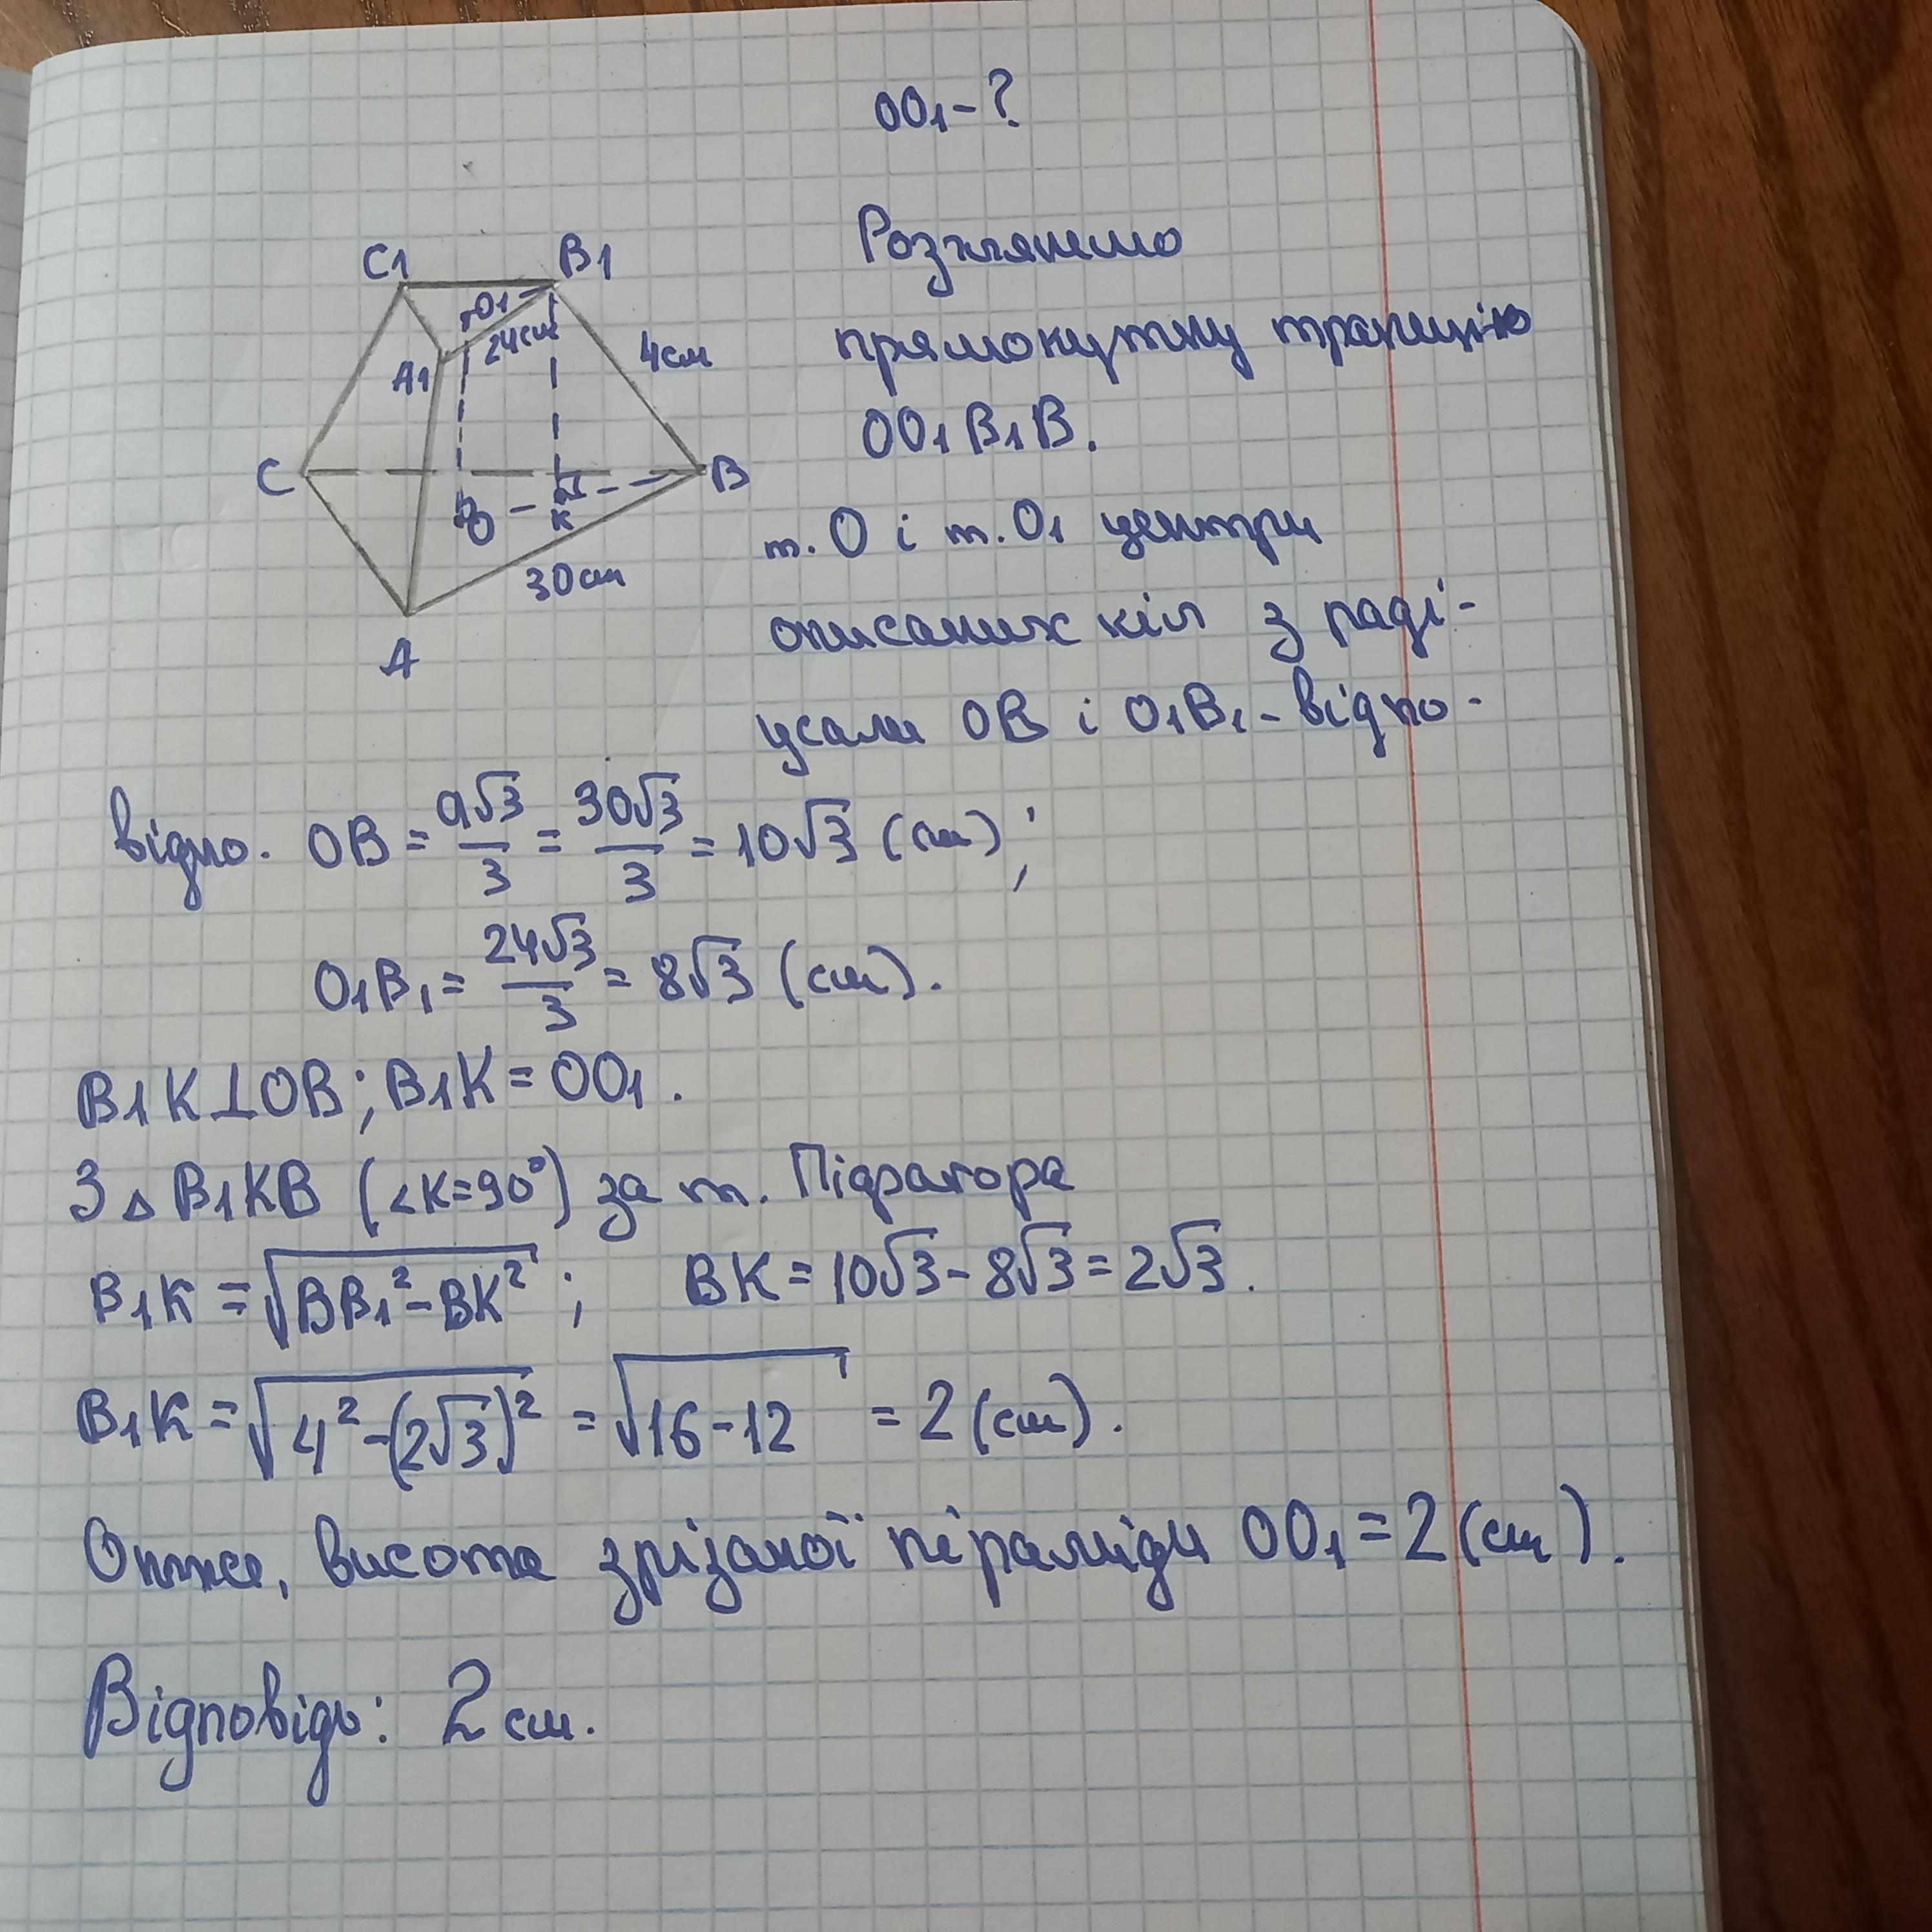 OO₁-?
C1
B1
O1
24см
A1
4см
C
B
O
K
30см
A
Розглянемо
прямокутну трапецію
OO₁B₁B.
т. O і т. O₁ центри
описаних кіл з раді-
усами OB і O₁B₁ - відпо-
відно. OB = a√3/3 = 30√3/3 = 10√3 (см);
O₁B₁ = 24√3/3 = 8√3 (см).
B₁K⊥OB; B₁K = OO₁.
З △ B₁KB (∠K=90°) за т. Піфагора
B₁K = √(BB₁² - BK²); BK = 10√3 - 8√3 = 2√3.
B₁K = √(4² - (2√3)²) = √(16-12) = 2 (см).
Отже, висота зрізаної піраміди OO₁ = 2 (см).
Відповідь: 2 см.